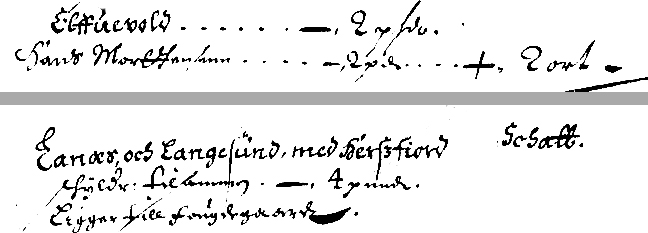 Elffuevold . . . . . . —. 2 pdr.
Hans Morttensenn . . . . —. 2 pd. . . . +. 2 ort —
Tanæs, och Langesünd, med Hersfiord Schatt.
schylder tilsammen . —. 4 pund.
Ligger till Fougdegaarde.